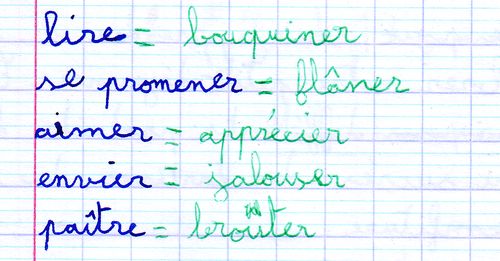 lire = bouquiner
se promener = flâner
aimer = apprécier
envier = jalouser
paître = brouter